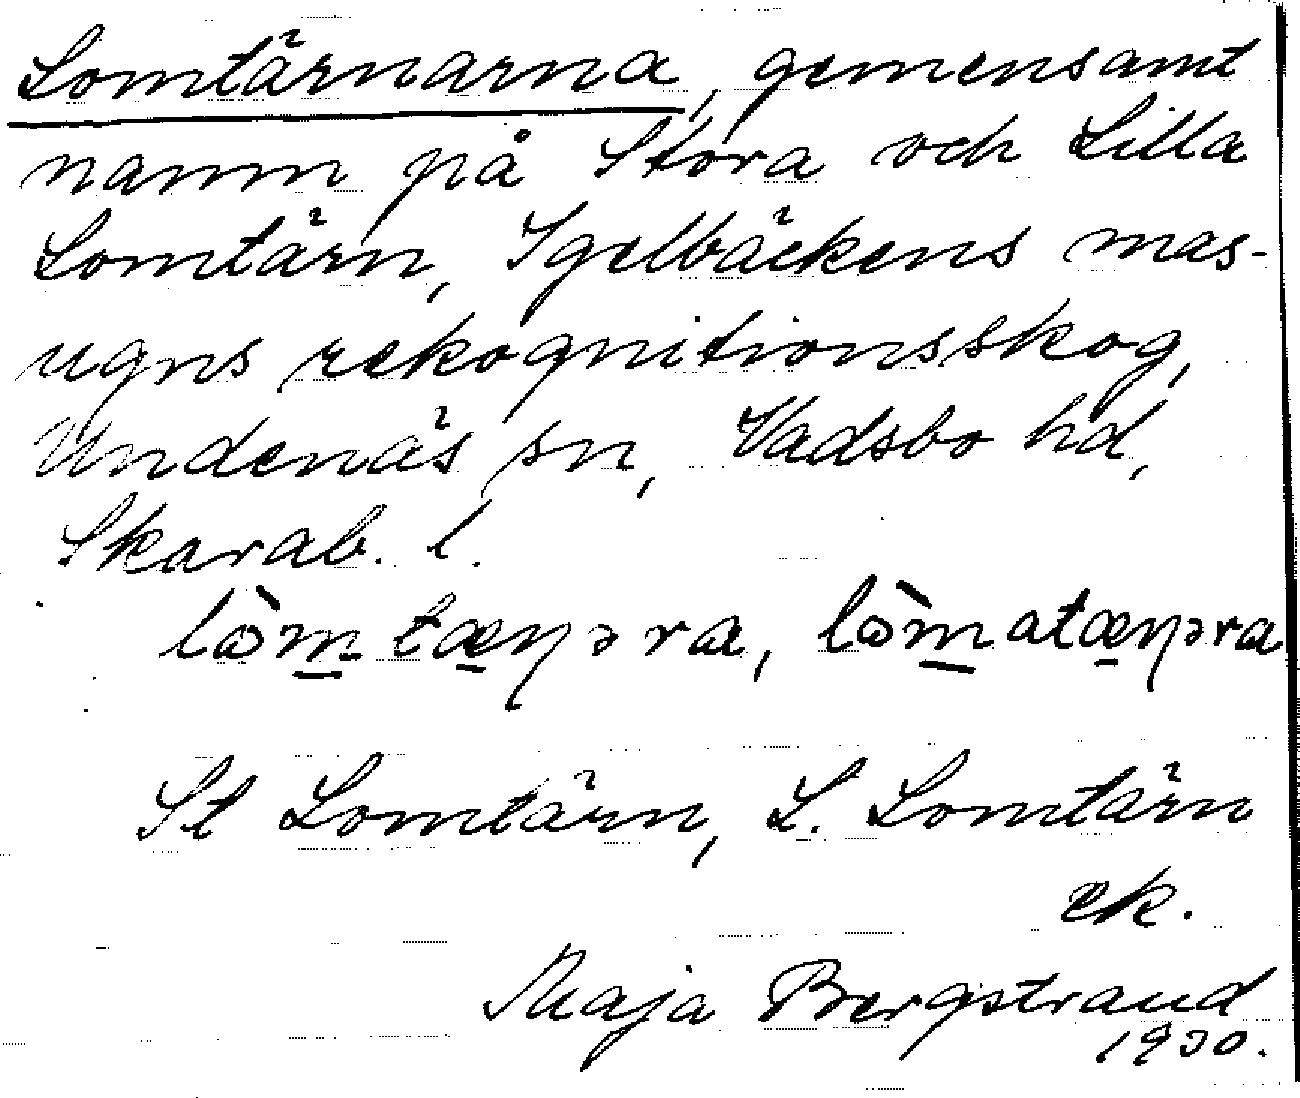 Lomtärnarna, gemensamt
namn på Stora och Lilla
Lomtärn, Igelbäckens mas-
ugns rekognitionsskog,
Undenäs sn, Vadsbo hd,
Skarab. l.
lò̤m̲tæ̲ɳəra, lò̤m̲atæ̲ɳəra
St Lomtärn, L. Lomtärn
ek.
Maja Bergstrand
1930.